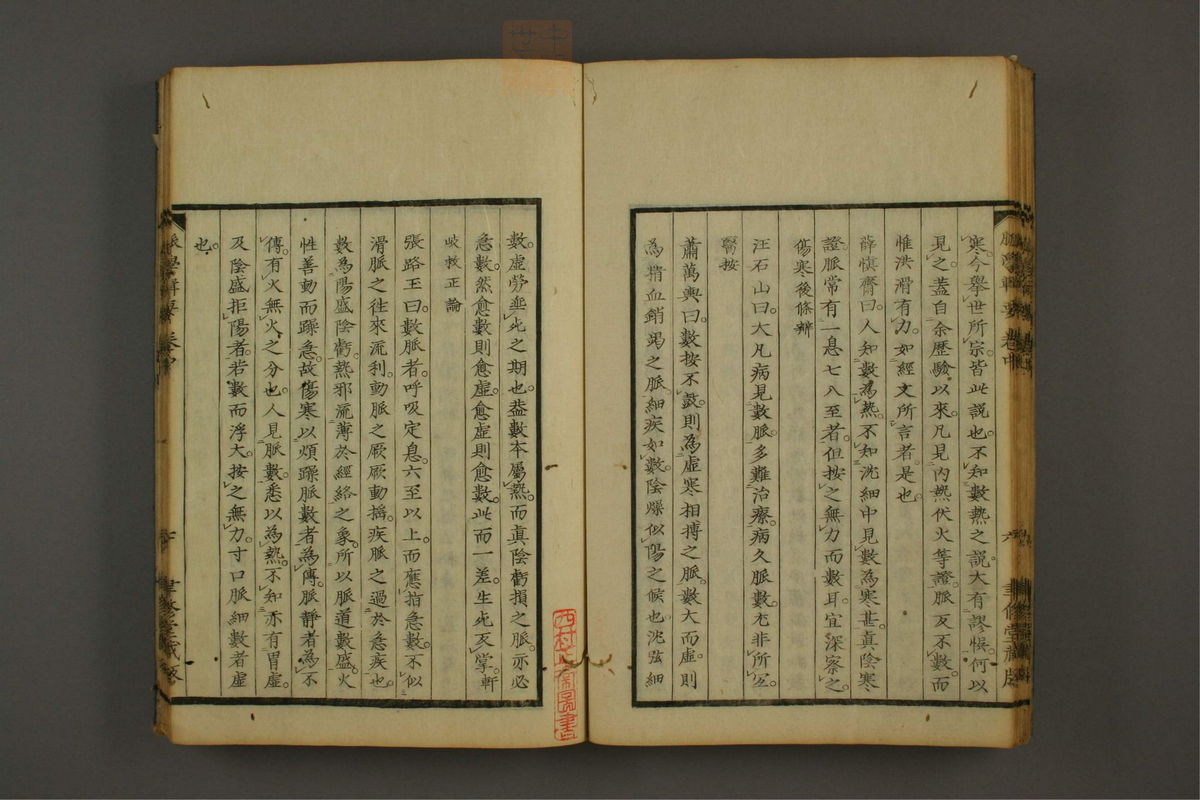 寒。今擧世所宗。皆此説也。不知數熱之説。大有謬悞。何以
見之。蓋自余歷驗以來。凡見内熱伏火等證。脈反不數。而
惟洪滑有力。如經文所言者。是也。
薛愼齋曰。人知數爲熱。不知沈細中見數爲寒甚。眞陰寒
證脈常有一息七八至者。但按之無力而數耳。宜深察之。
傷寒後條辨
汪石山曰。大凡病見數脈。多難治療。病久脈數。尤非所宜。
醫按
蕭萬輿曰。數按不鼓。則爲虛寒相搏之脈。數大而虛。則
爲精血銷竭之脈。細疾如數。陰燥似陽之候也。沈弦細
數。虛勞垂死之期也。蓋數本屬熱。而眞陰虧損之脈。亦必
急數。然愈數則愈虛。愈虛則愈數。此而一差。生死反掌。軒
岐救正論
張路玉曰。數脈者。呼吸定息。六至以上。而應指急數。不似
滑脈之往來流利。動脈之厥厥動搖。疾脈之過於急疾也。
數爲陽盛陰虧。熱邪流薄於經絡之象。所以脈道數盛。火
性善動而躁急。故傷寒以煩躁脈數者爲傳。脈靜者爲不
傳。有火無火之分也。人見脈數。悉以爲熱。不知亦有胃虛
及陰盛拒陽者。若數而浮大。按之無力。寸口脈細數者虛
也。
脈學輯要 卷中
六 聿修堂藏版